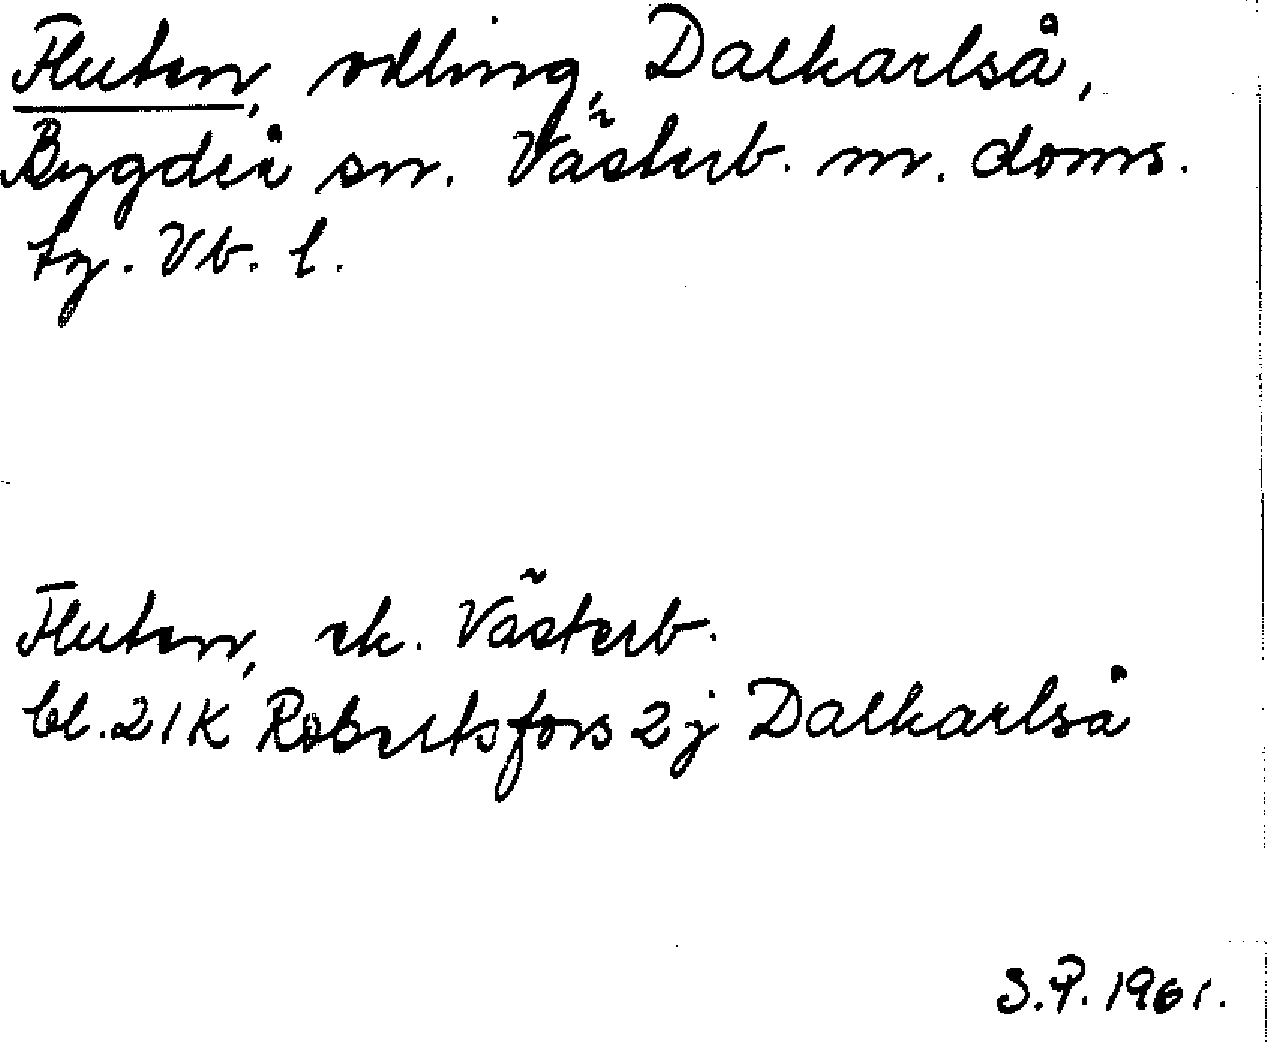 Fluten, odling, Dalkarlså,
Bygdeå sn. Västerb. m. doms.
tg. Vb. l.
Fluten, ek. Västerb.
bl. 21K Robertsfors 2j Dalkarlså
S.P. 1961.